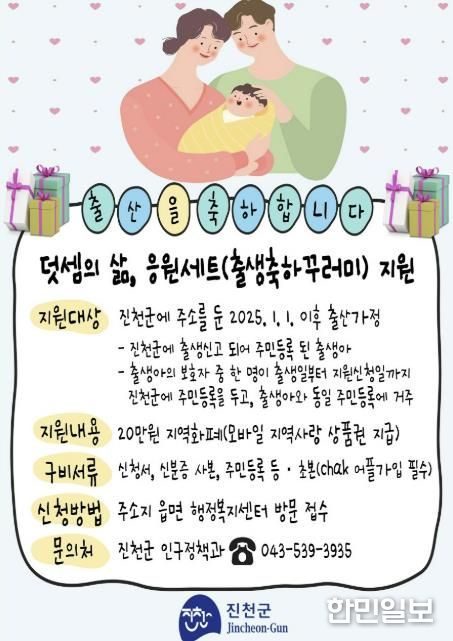 출산을축하합니다
덧셈의 삶, 응원세트(출생축하꾸러미) 지원
지원대상 진천군에 주소를 둔 2025. 1. 1. 이후 출산가정
- 진천군에 출생신고 되어 주민등록 된 출생아
- 출생아의 보호자 중 한 명이 출생일부터 지원신청일까지
진천군에 주민등록을 두고, 출생아와 동일 주민등록에 거주
지원내용 20만원 지역화폐(모바일 지역사랑 상품권 지급)
구비서류 신청서, 신분증 사본, 주민등록 등·초본(chak 어플가입 필수)
신청방법 주소지 읍면 행정복지센터 방문 접수
문의처 진천군 인구정책과 ☎ 043-539-3935
진천 진천군
Jincheon-Gun
한민일보